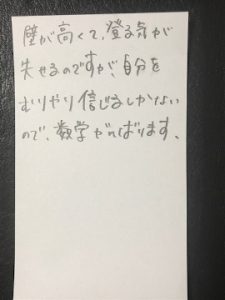 壁が高くて、登る気が
失せるのですが、自分を
むりやり信じるしかない
ので、数学がんばります。